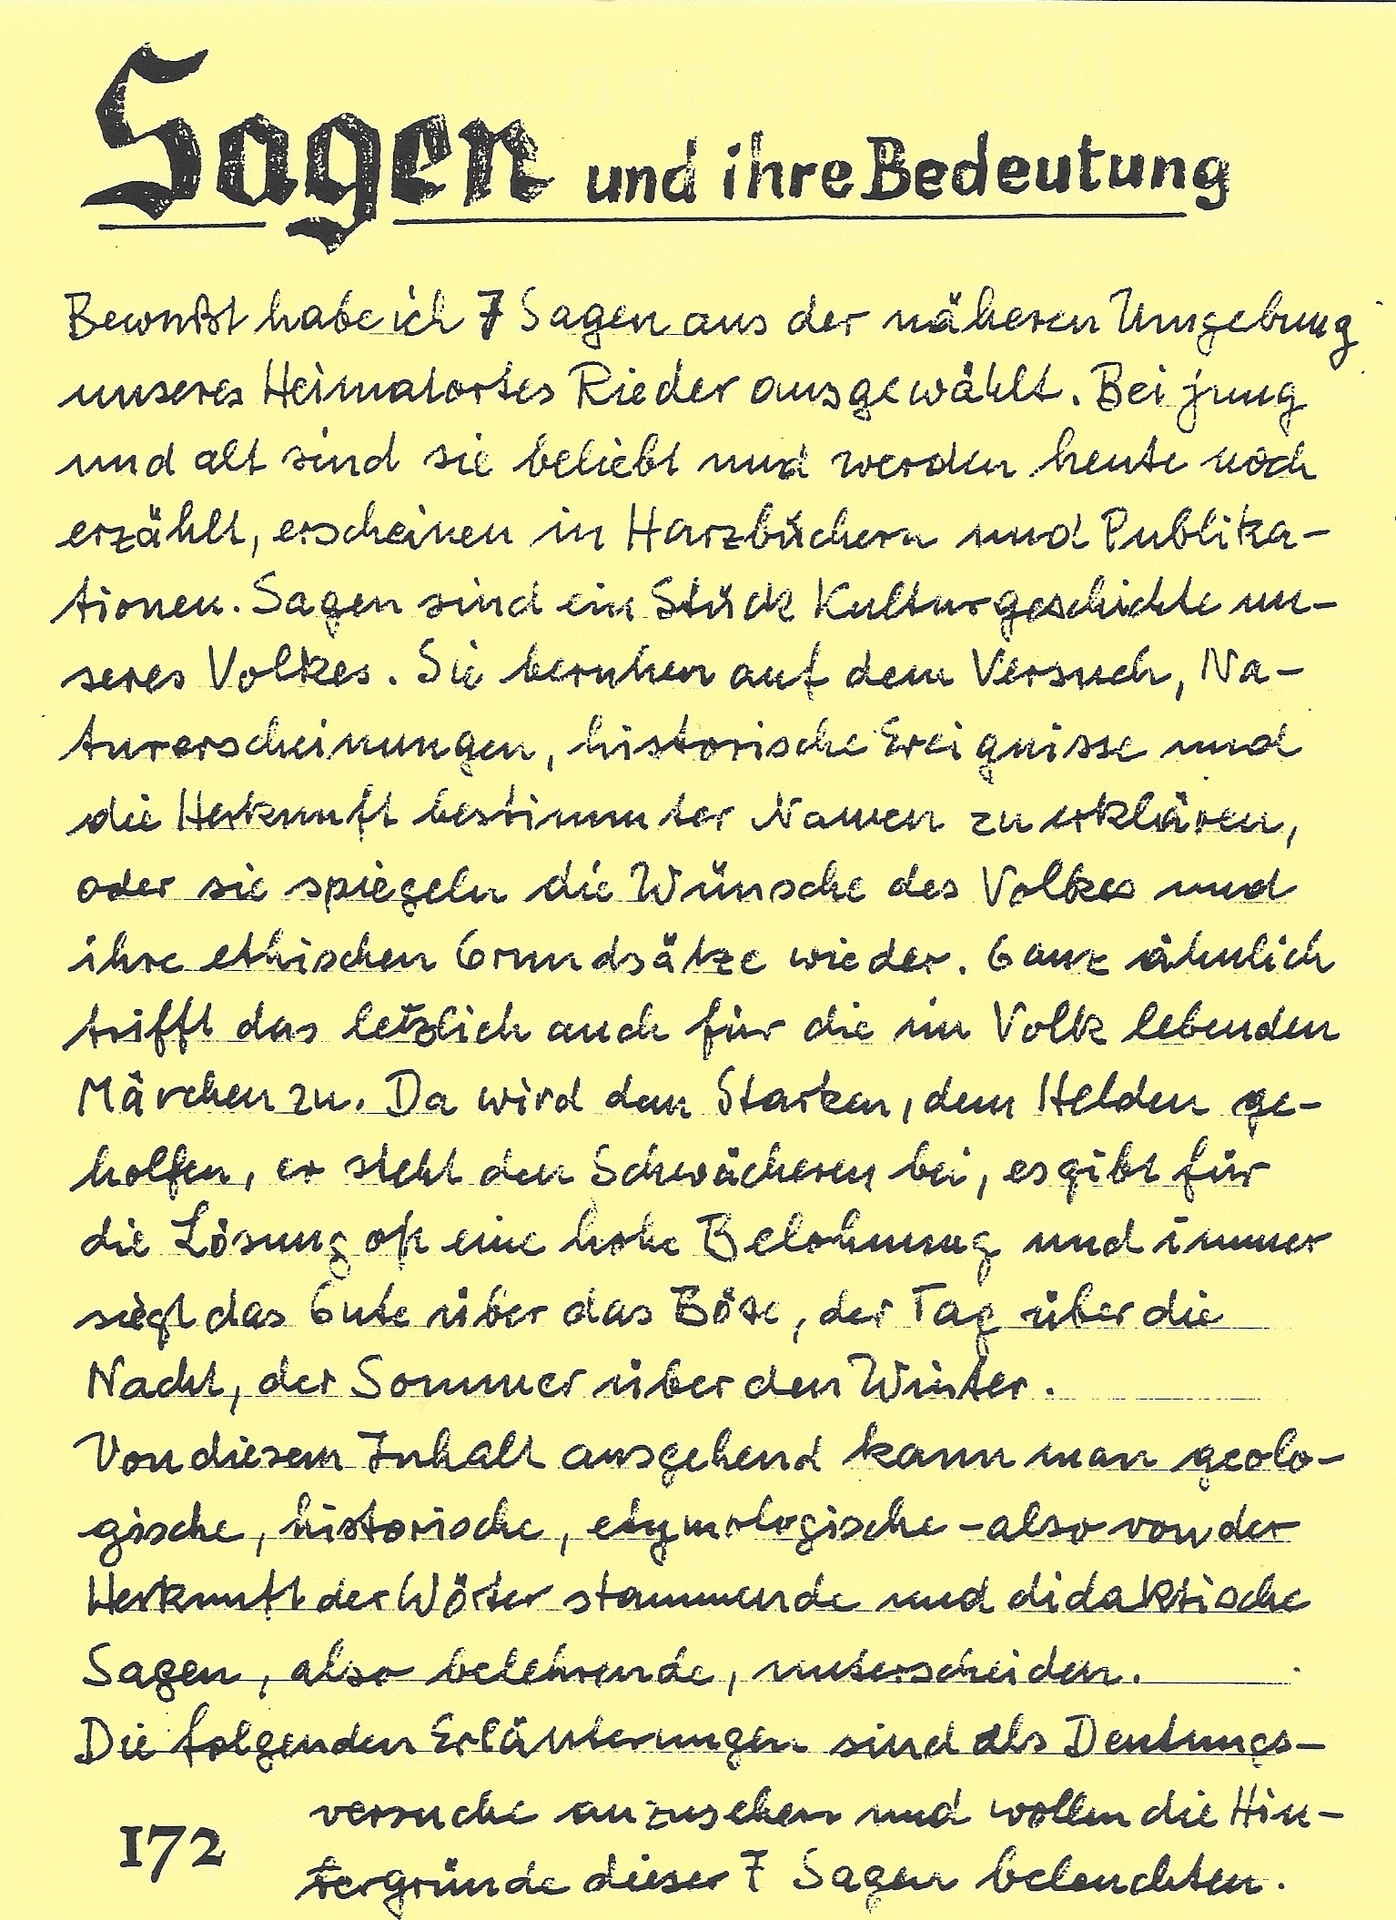 Sagen und ihre Bedeutung
Bewußt habe ich 7 Sagen aus der näheren Umgebung
unseres Heimatortes Rieder ausgewählt. Bei jung
und alt sind sie beliebt und werden heute noch
erzählt, erscheinen in Harzbüchern und Publika-
tionen. Sagen sind ein Stück Kulturgeschichte un-
seres Volkes. Sie beruhen auf dem Versuch, Na-
turerscheinungen, historische Ereignisse und
die Herkunft bestimmter Namen zu erklären,
oder sie spiegeln die Wünsche des Volkes und
ihre ethischen Grundsätze wieder. Ganz ähnlich
trifft das letzlich auch für die im Volk lebenden
Märchen zu. Da wird dem Starken, dem Helden ge-
holfen, er steht den Schwächeren bei, es gibt für
die Lösung oft eine hohe Belohnung und immer
siegt das Gute über das Böse, der Tag über die
Nacht, der Sommer über den Winter.
Von diesem Inhalt ausgehend kann man geolo-
gische, historische, etymologische - also von der
Herkunft der Wörter stammende und didaktische
Sagen, also belehrende, unterscheiden.
Die folgenden Erläuterungen sind als Deutungs-
versuche anzusehen und wollen die Hin-
tergründe dieser 7 Sagen beleuchten.
172